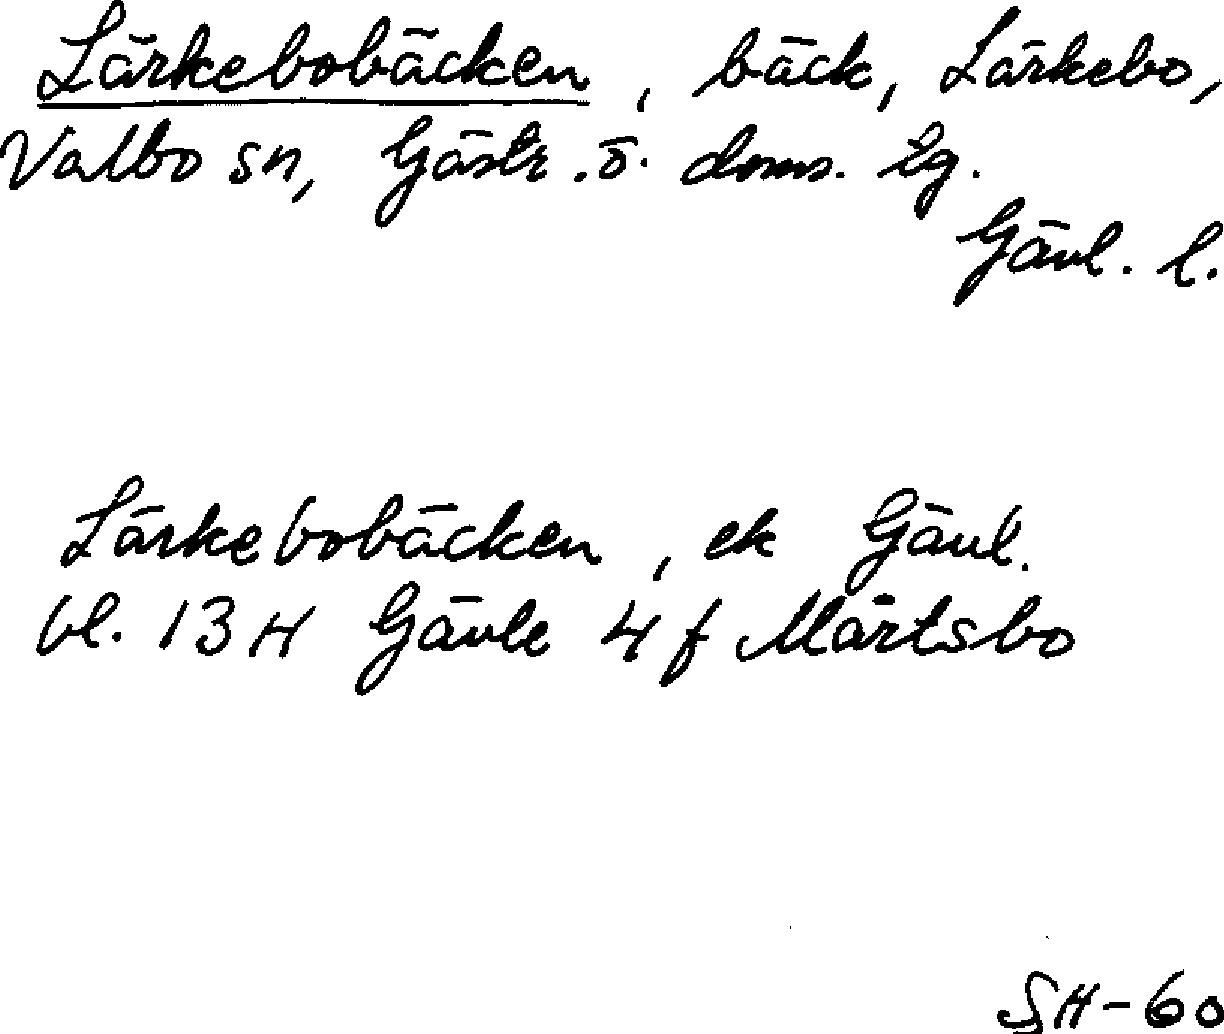 Lärkebobäcken, bäck, Lärkebo,
Valbo sn, Gästr. ö. doms. tg.
Gävl. l.
Lärkebobäcken, ek Gävl.
bl. 13 H Gävle 4 f Mårtsbo
SH-60